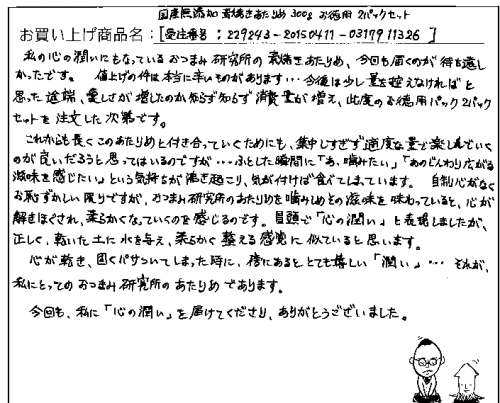 国産無添加 素焼きあたりめ 300g お徳用 2パックセット
お買い上げ商品名：[受注番号：229243-20150411-0317911326]
私の心の潤いにもなっているおつまみ研究所の素焼きあたりめ、今回も届くのが待ち遠し
かったです。 値上げの件は本当に辛いものがあります…今後は少し量を控えなければと
思った途端、愛しさが増したのか知らず知らず消費量が増え、此度のお徳用パック2パック
セットを注文した次第です。
これからも長くこのあたりめと付き合っていくためにも、集中しすぎず適度な量で楽しんでいく
のが良いだろうと思ってはいるのですが…ふとした瞬間に「あ、噛みたい」「あのじんわり広がる
滋味を感じたい」という気持ちが湧き起こり、気が付けば食べてしまっています。 自制心がなく
お恥ずかしい限りですが、おつまみ研究所のあたりめを噛みしめその滋味を味わっていると、心が
解きほぐされ、柔らかくなっていくのを感じるのです。冒頭で「心の潤い」と表現しましたが、
正しく、乾いた土に水を与え、柔らかく整える感覚に似ていると思います。
心が乾き、固くパサついてしまった時に、傍にあるととても嬉しい「潤い」… それが、
私にとってのおつまみ研究所のあたりめであります。
今回も、私に「心の潤い」を届けてくださり、ありがとうございました。